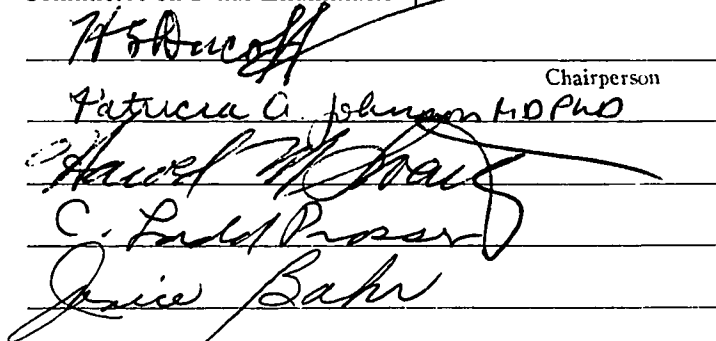 Committee on Final Examination†
H S Ducoff
Chairperson
Patricia A. Johnson MD PhD
Harold M Swartz
C. Ladd Prosser
Janice Bahr